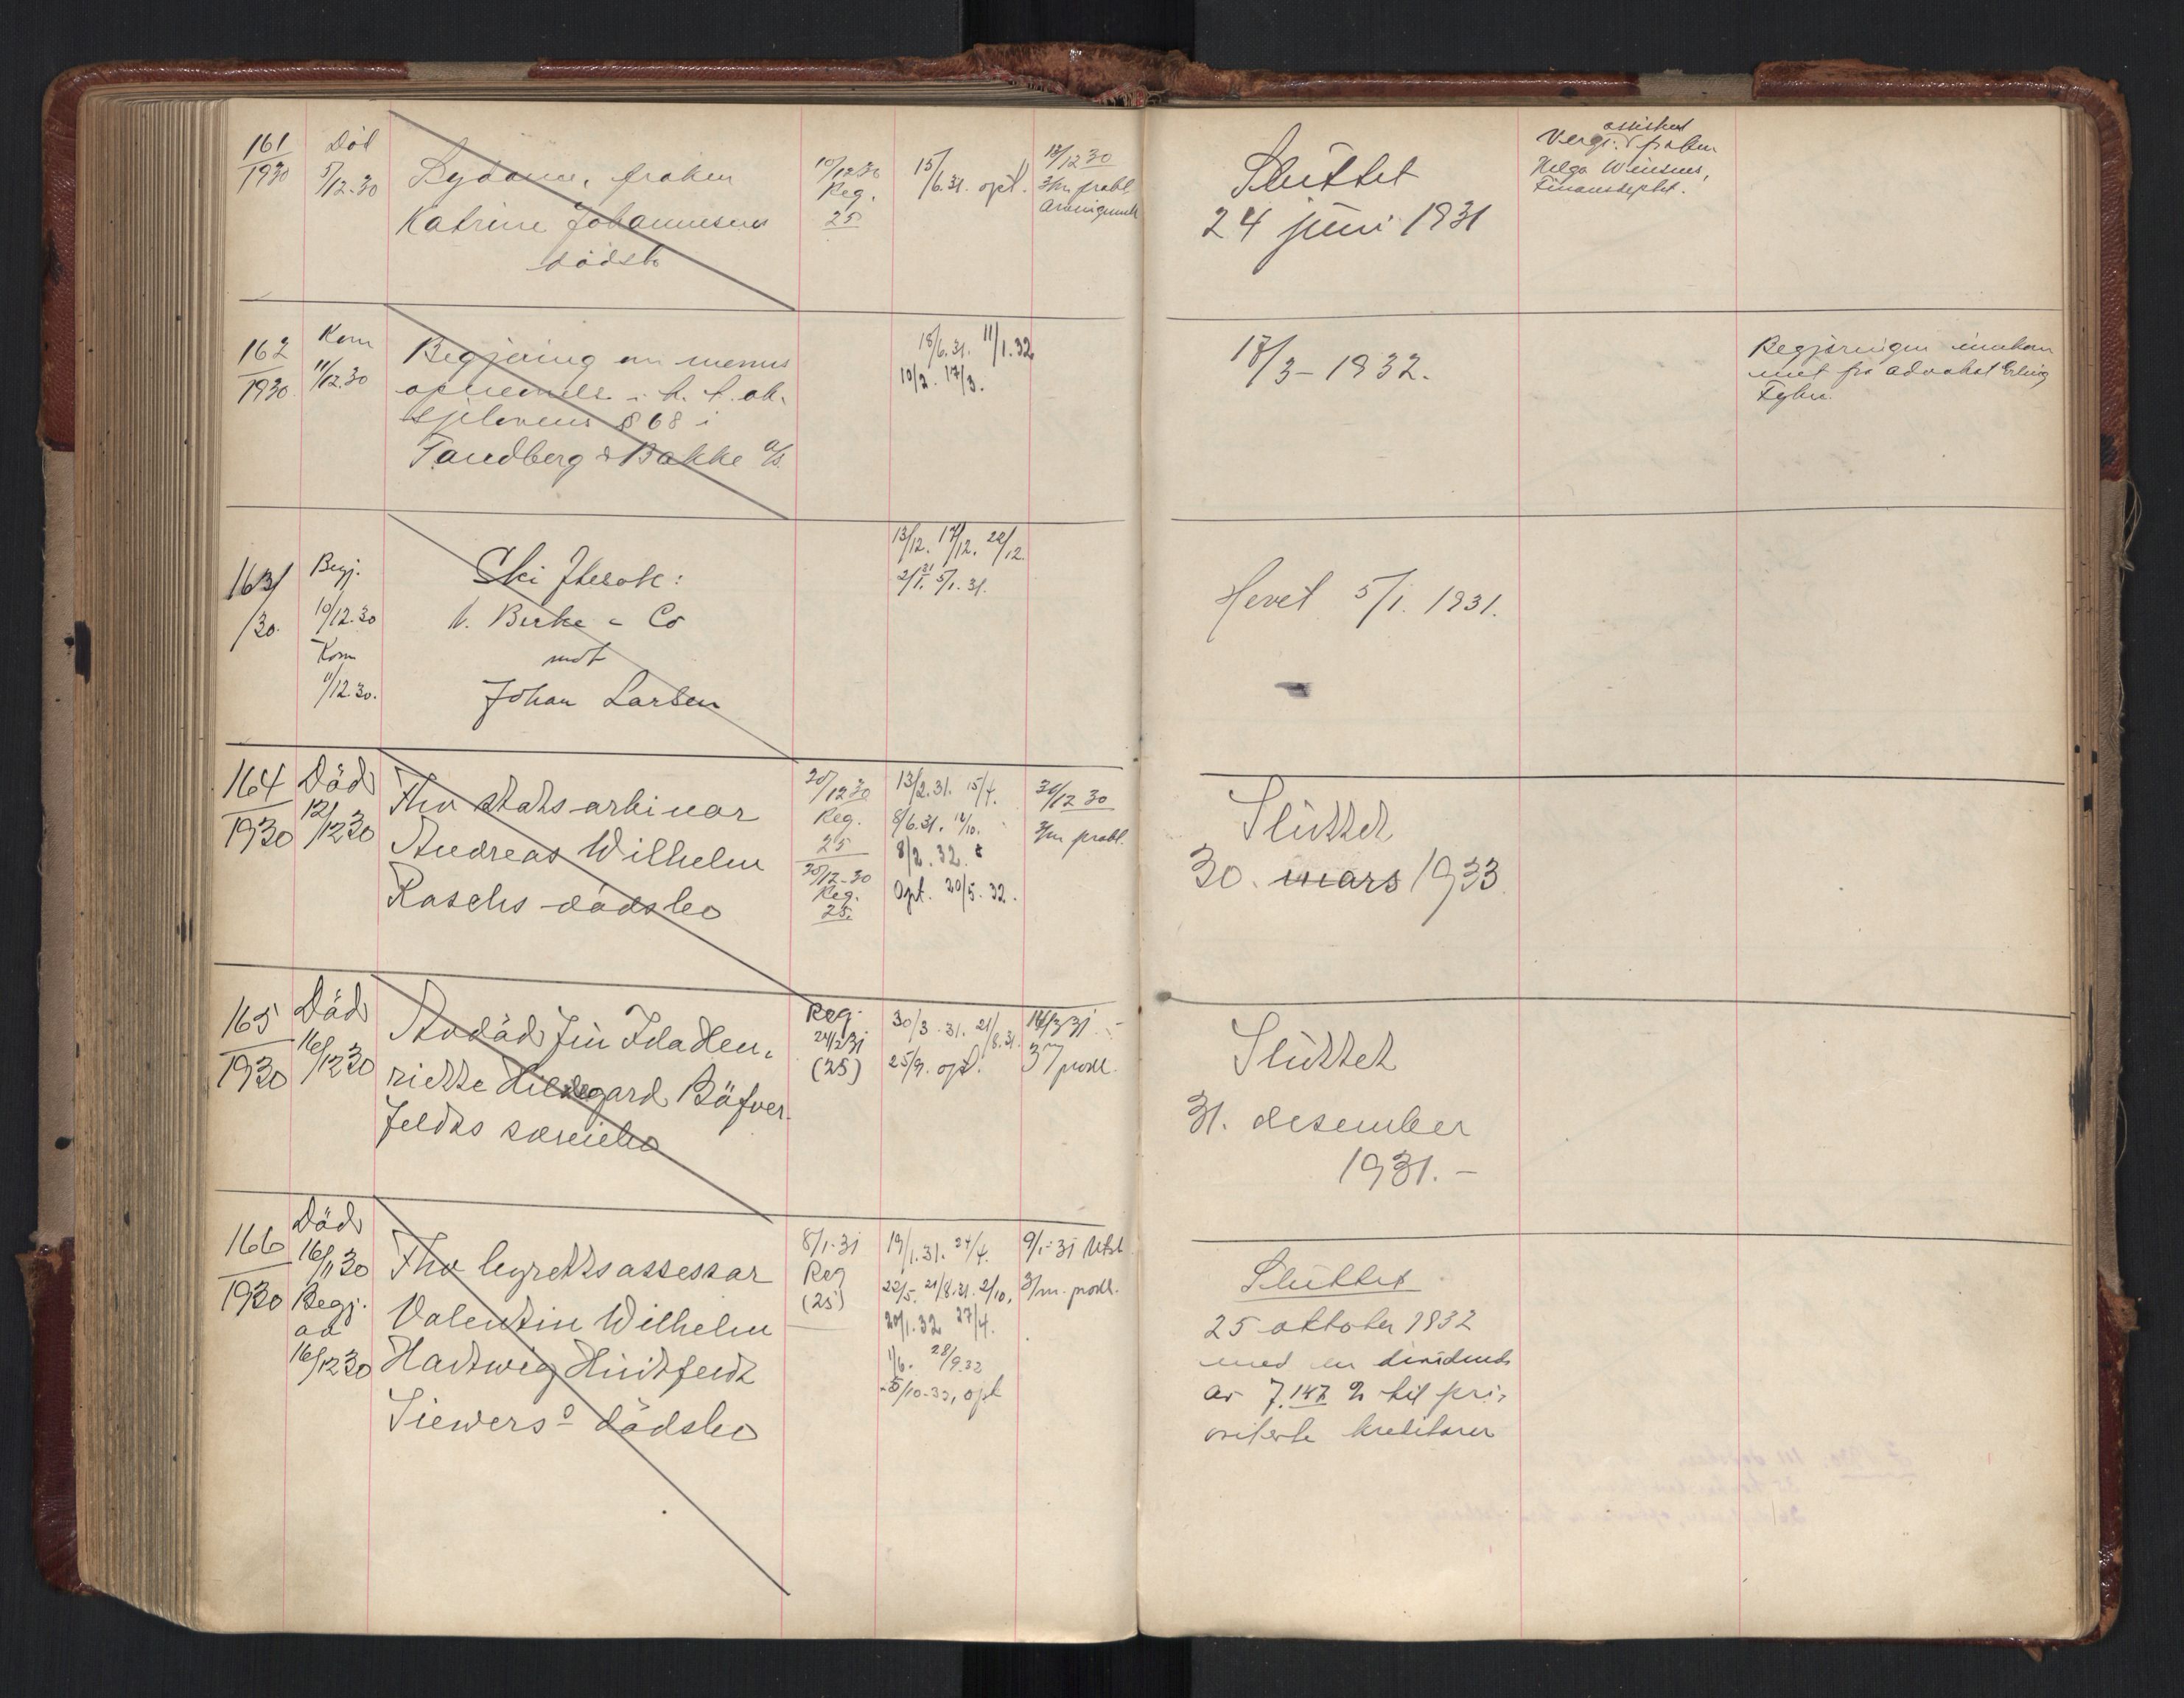 161
1930
Död
5/12-30
Sydame, frøken
Katrine Johannesens
dödsbo
10/12 30
Reg.
25
15/6.31. opt.
18/12 30
3/m probl
Slüttet
24 jüni 1931
assistent
Verge: frøken
Helga
Finansdeptet.
162
1930
Kom
11/12.30
Begjæring om
opnevnelse i h. t. ak-
sjelovens § 68 i
Tandberg & Bakke a/s.
18/6.31. 11/1.32
10/2. 17/3.
17/3-1932.
Begjæringen innkom
met fra advokat Erling
163/
/30.
Begj.
10/12.30
Kom
11/12 30.
Ski
V. Birke & Co
mot
Johan Larsen
13/12. 17/12. 22/12
2/1. 31 5/1. 31.
Hevet 5/1. 1931.
164
1930
Död
12/12 30
Fhv statsarkivar
Andreas Wilhelm
Raschs dödsbo
20/12 30
Reg.
25
30/12-30
Reg.
25.
13/2.31. 15/4.
8/6.31. 12/10.
8/2.32.
Opt. 20/5.32.
30/12 30
3/m probl.
Slüttet
30. mars 1933
165
1930
Död
16/12 30
Avdöd frü Ida Hen-
riette Hildegard Bäfver-
feldts særeiebo
Reg.
24/2 31
(25)
30/3.31. 21/8.31.
25/9. opt.
14/3 31
3 m probl.
Slüttet
31. desember
1931.-
166
1930
Död
16/11 30
Begj.
ad
16/12 30
Fhv byrettsassessor
Valentin Wilhelm
Hartwig Hüitfeldt
Siewers' dödsbo
8/1-31
Reg
(25)
19/1.31. 24/4.
22/5. 21/8.31. 2/10.
20/1.32 27/4.
1/6. 28/9.32
5/10-32, opt
9/1-31 Utst
3/m. probl.
Slüttet
25 oktober 1932
med en dividende
av 7.147 % til pri-
oriterte kreditorer